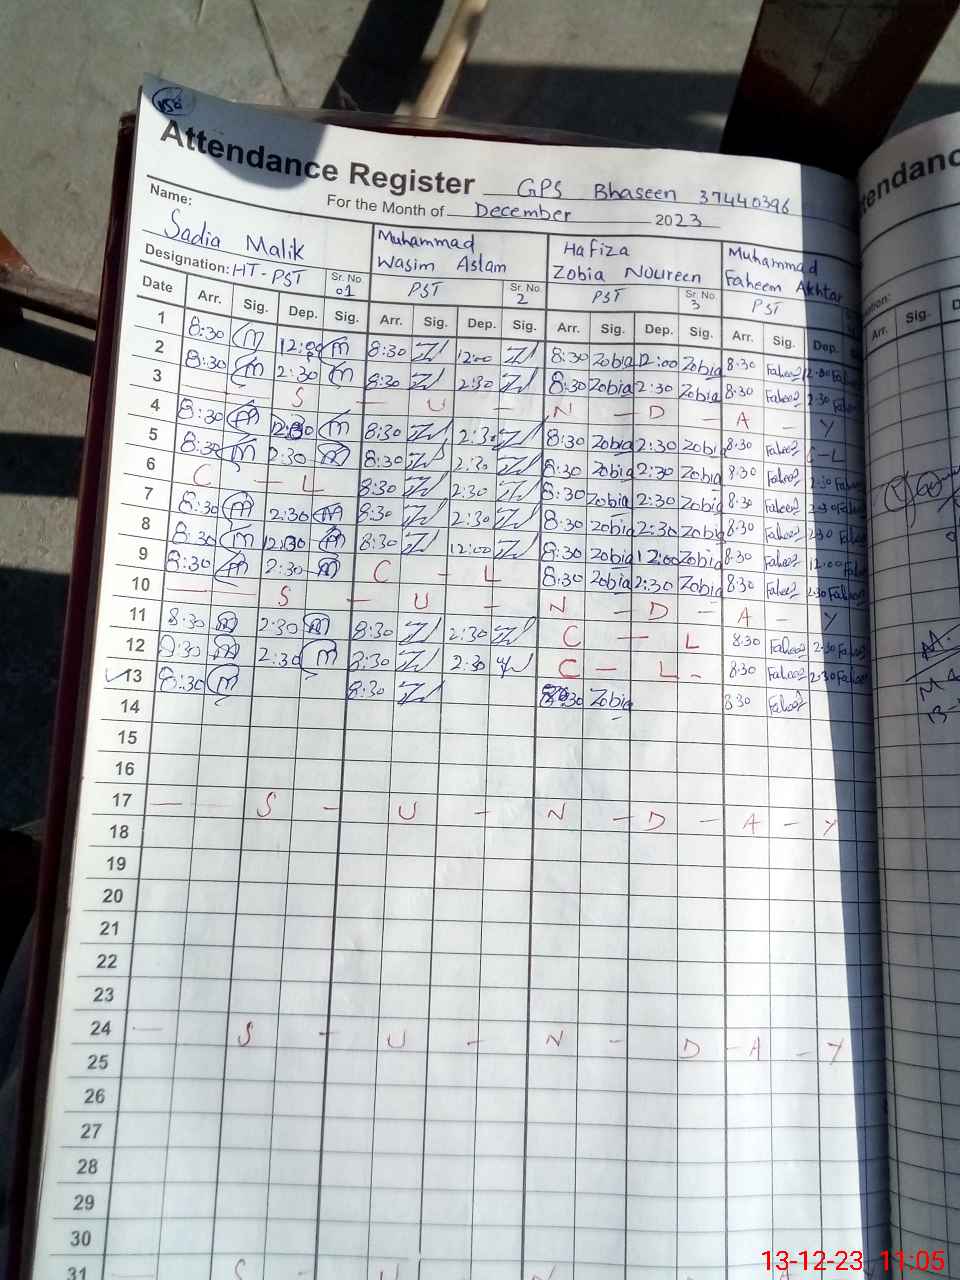 158
Attendance Register GPS Bhaseen 37440396
For the Month of December 2023
Name: Sadia Malik Muhammad Wasim Aslam Hafiza Zobia Noureen Muhammad Faheem Akhtar
Designation: HT-PST Sr. No. 01 PST Sr. No. 2 PST Sr. No. 3 PST
Date Arr. Sig. Dep. Sig. Arr. Sig. Dep. Sig. Arr. Sig. Dep. Sig. Arr. Sig. Dep.
1 8:30 12:00 8:30 12:00 8:30 Zobia 12:00 Zobia 8:30 12:00
2 8:30 2:30 8:30 2:30 8:30 Zobia 2:30 Zobia 8:30 2:30
3 — S — U — N — D — A — Y
4 8:30 8:30 2:30 8:30 Zobia 2:30 Zobia 8:30 C-L
5 8:30 2:30 8:30 2:30 8:30 Zobia 2:30 Zobia 8:30 2:30
6 C — L 8:30 2:30 8:30 Zobia 2:30 Zobia 8:30 2:30
7 8:30 2:30 8:30 2:30 8:30 Zobia 2:30 Zobia 8:30 2:30
8 8:30 12:30 8:30 12:00 8:30 Zobia 12:00 Zobia 8:30 12:00
9 8:30 2:30 C - L 8:30 Zobia 2:30 Zobia 8:30 2:30
10 — S — U — N — D — A — Y
11 8:30 2:30 8:30 2:30 C — L 8:30 2:30
12 8:30 2:30 8:30 2:30 C — L - 8:30 2:30
13 8:30 8:30 8:30 Zobia 8:30
14
15
16
17 — — S - U - N - D - A - Y
18
19
20
21
22
23
24 — S - U - N - D - A - Y
25
26
27
28
29
30
31 — S - U
tendanc
Arr. Sig.
13-12-23 11:05